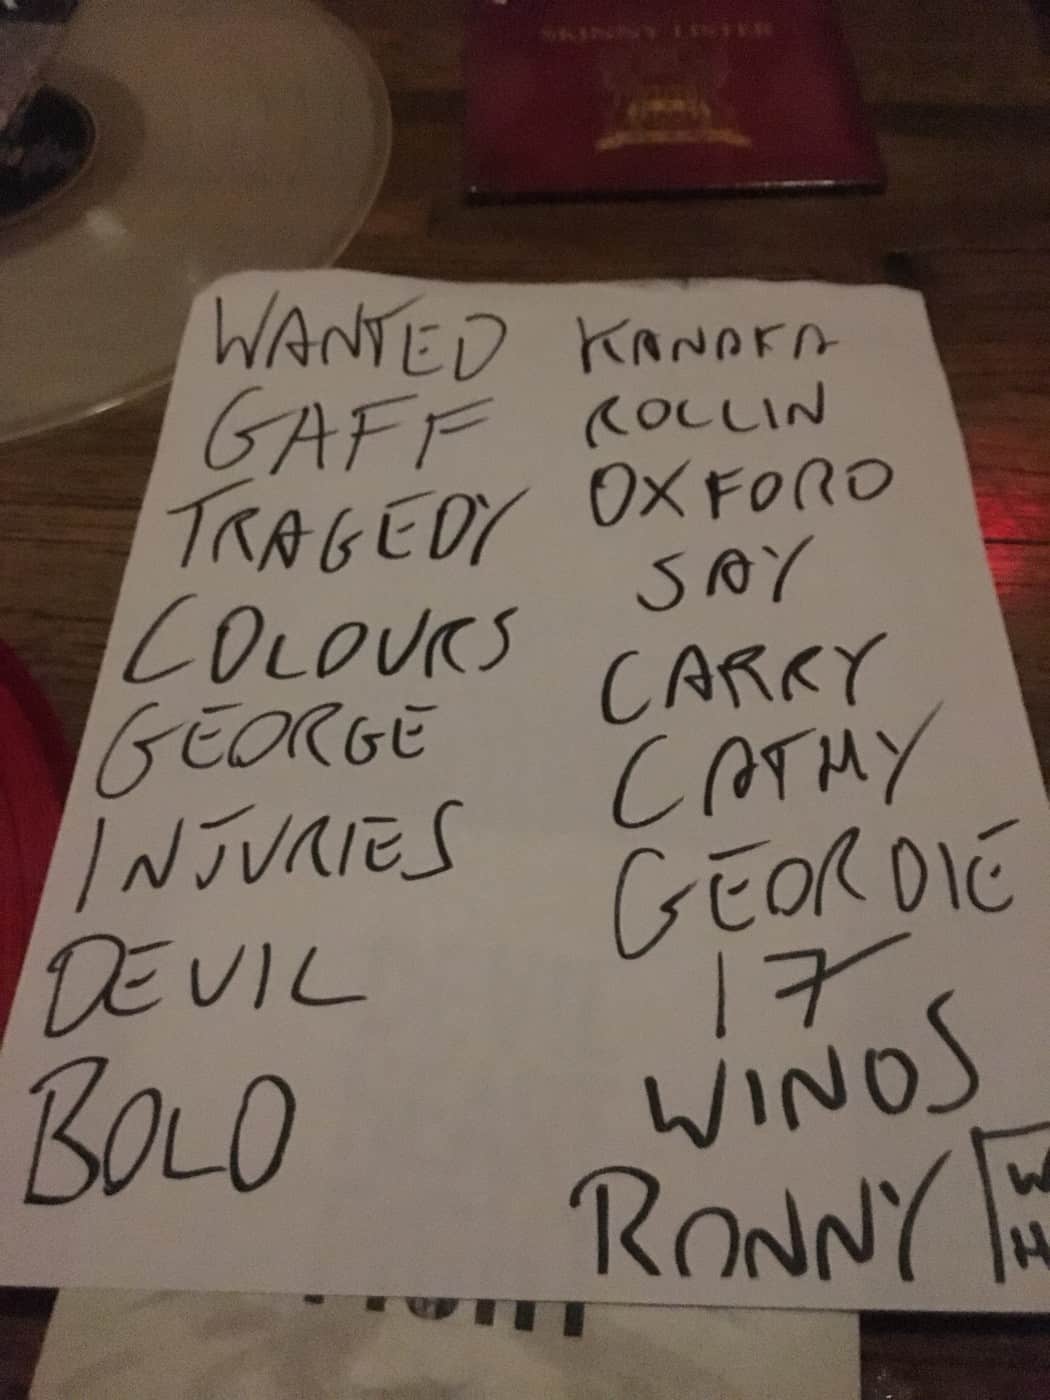 SKINNY LISTER
WANTED
GAFF
TRAGEDY
COLOURS
GEORGE
INJURIES
DEVIL
BOLO
KANAKA
ROLLIN
OXFORD
SAY
CARRY
CATHY
GEORDIE
17
WINOS
RONNY
W
H